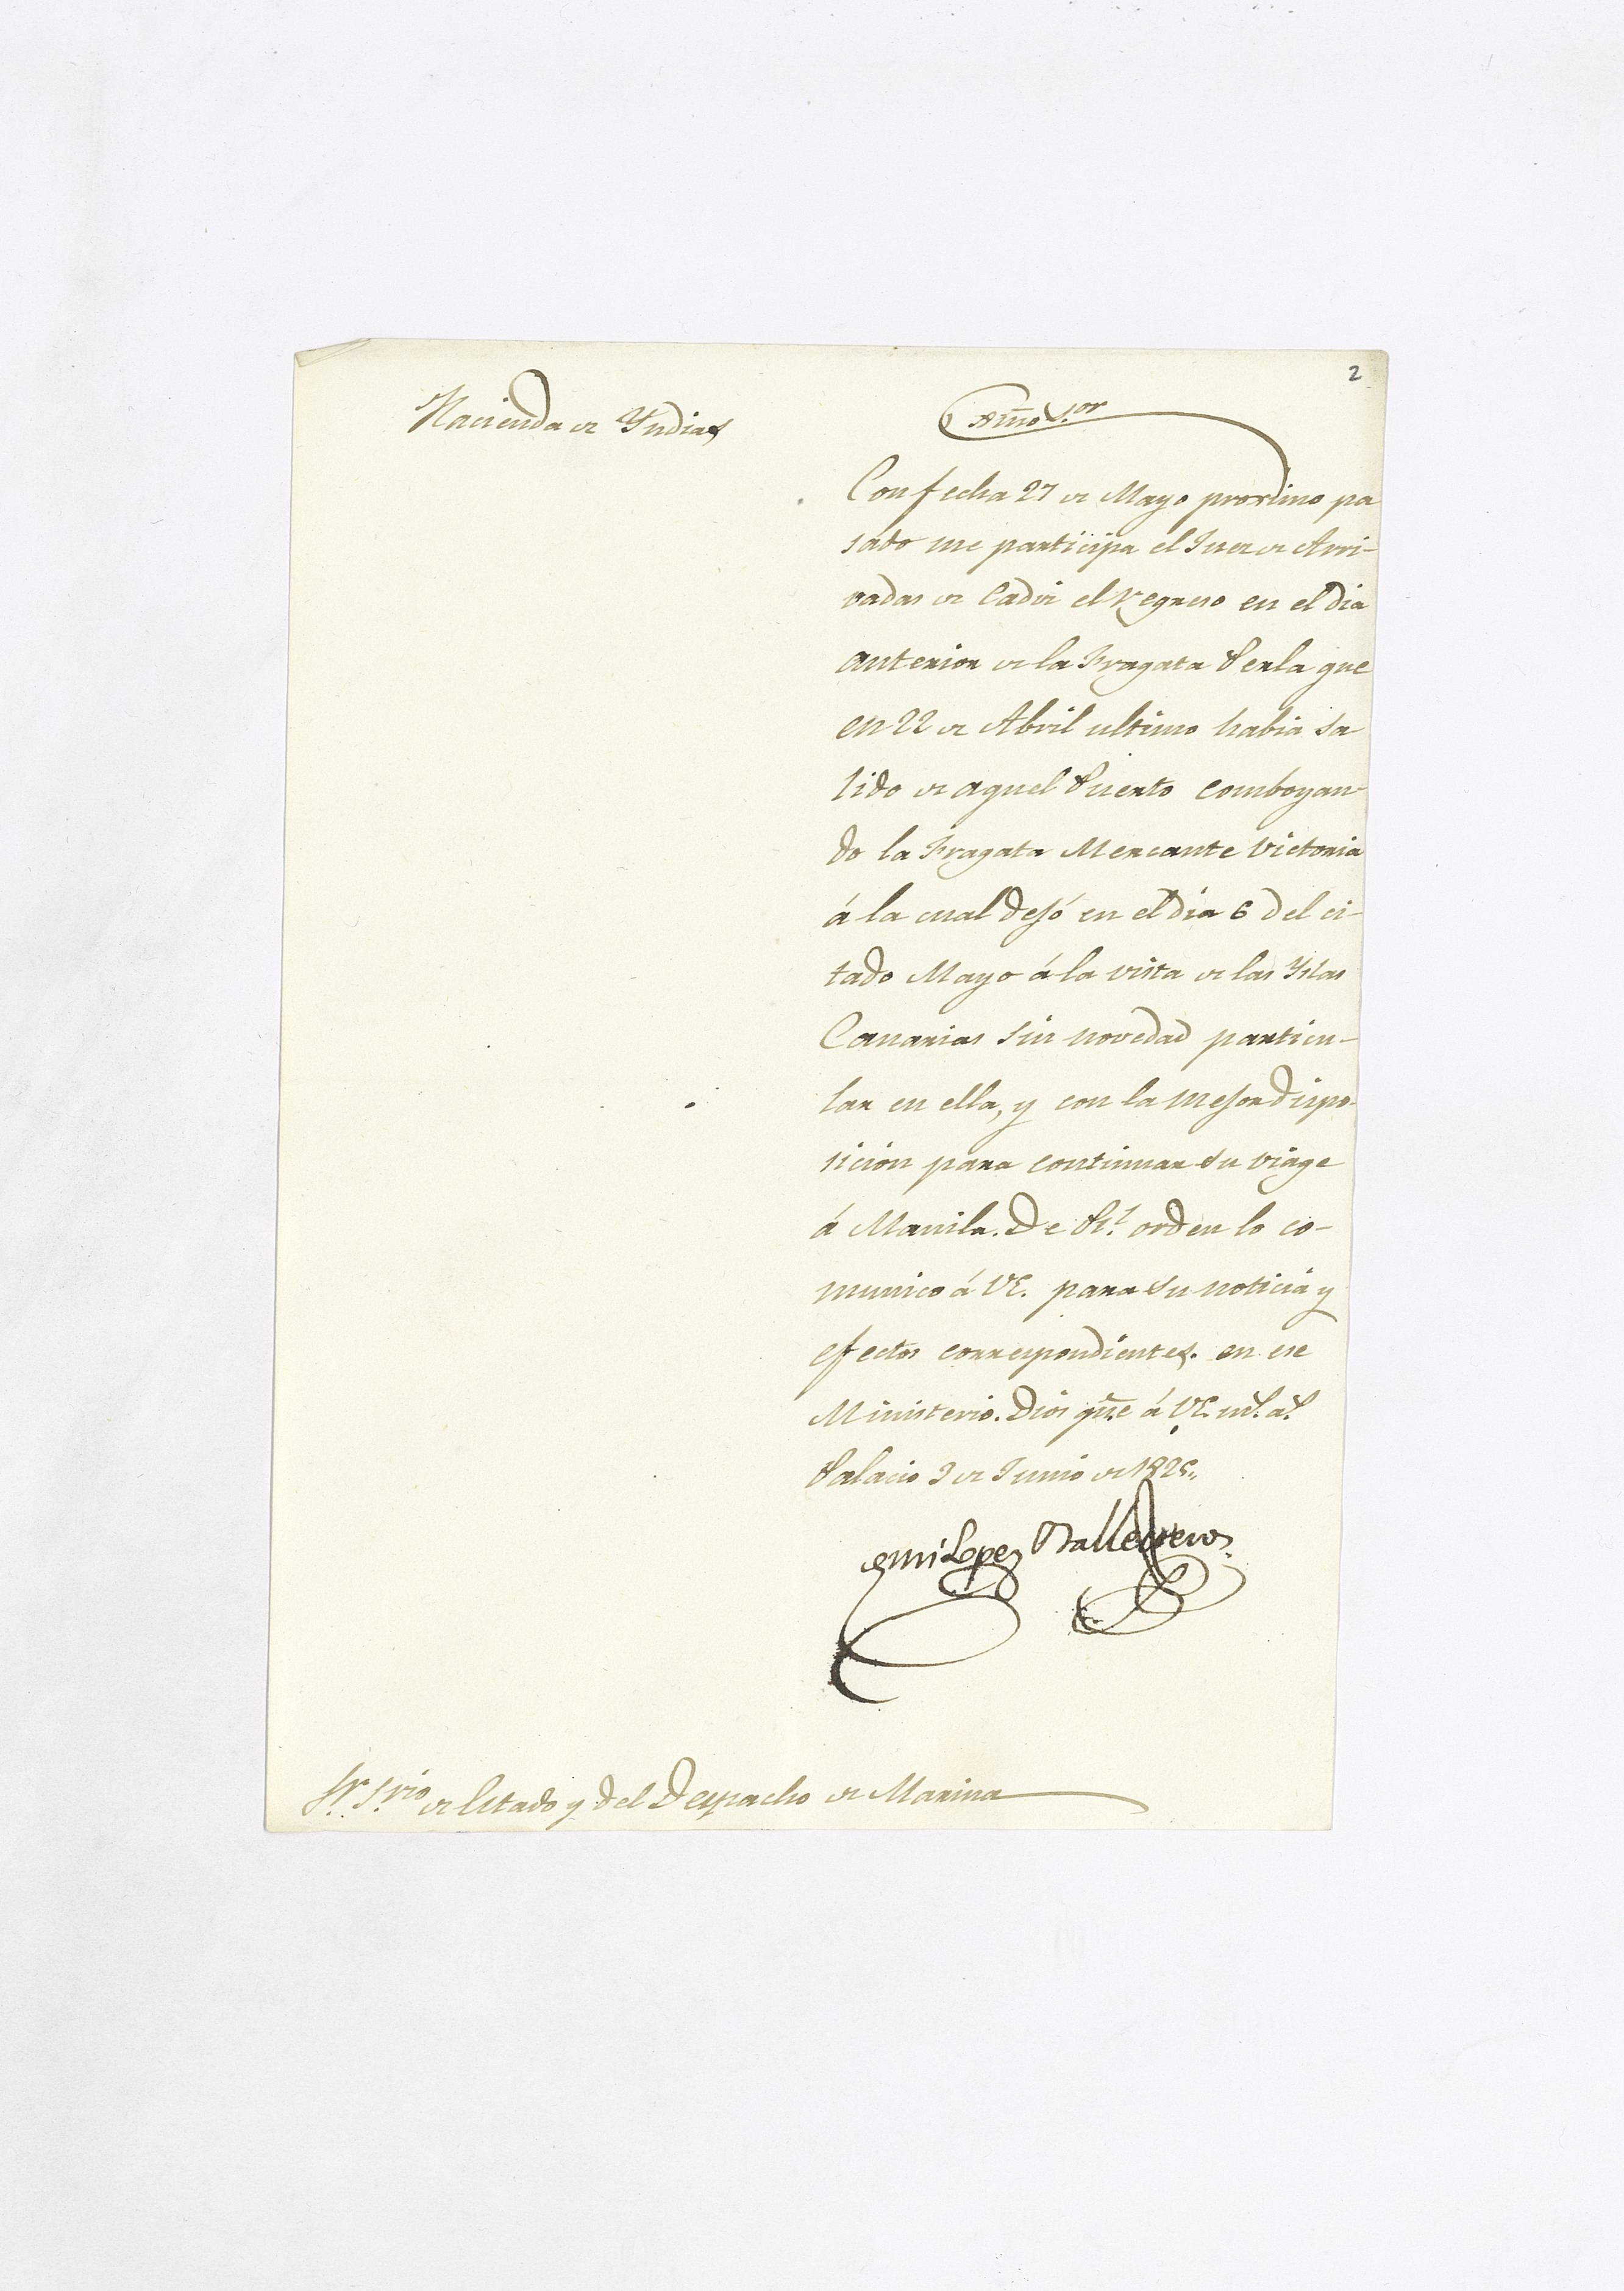 2
Hacienda de Yndias
Exmo S.or
Con fecha 27 de Mayo proximo pa
sado me participa el Juez de Arri-
vadas de Cadiz el regreso en el dia
anterior de la Fragata Perla que
en 22 de Abril ultimo habia sa
lido de aquel Puerto comboyan
do la Fragata Mercante Victoria
á la cual dejó en el dia 6 del ci-
tado Mayo á la vista de las Yslas
Canarias sin novedad particu-
lar en ella, y con la mejor dispo-
sicion para continuar su viage
á Manila. De Rl. orden lo co-
munico á VE. para su noticia y
efectos correspondientes. en ese
Ministerio. Dios gue á VE. ms. as.
Palacio 3 de Junio de 1825.
Luis Lopez Ballesteros
Sr. S.rio de Estado y del Despacho de Marina